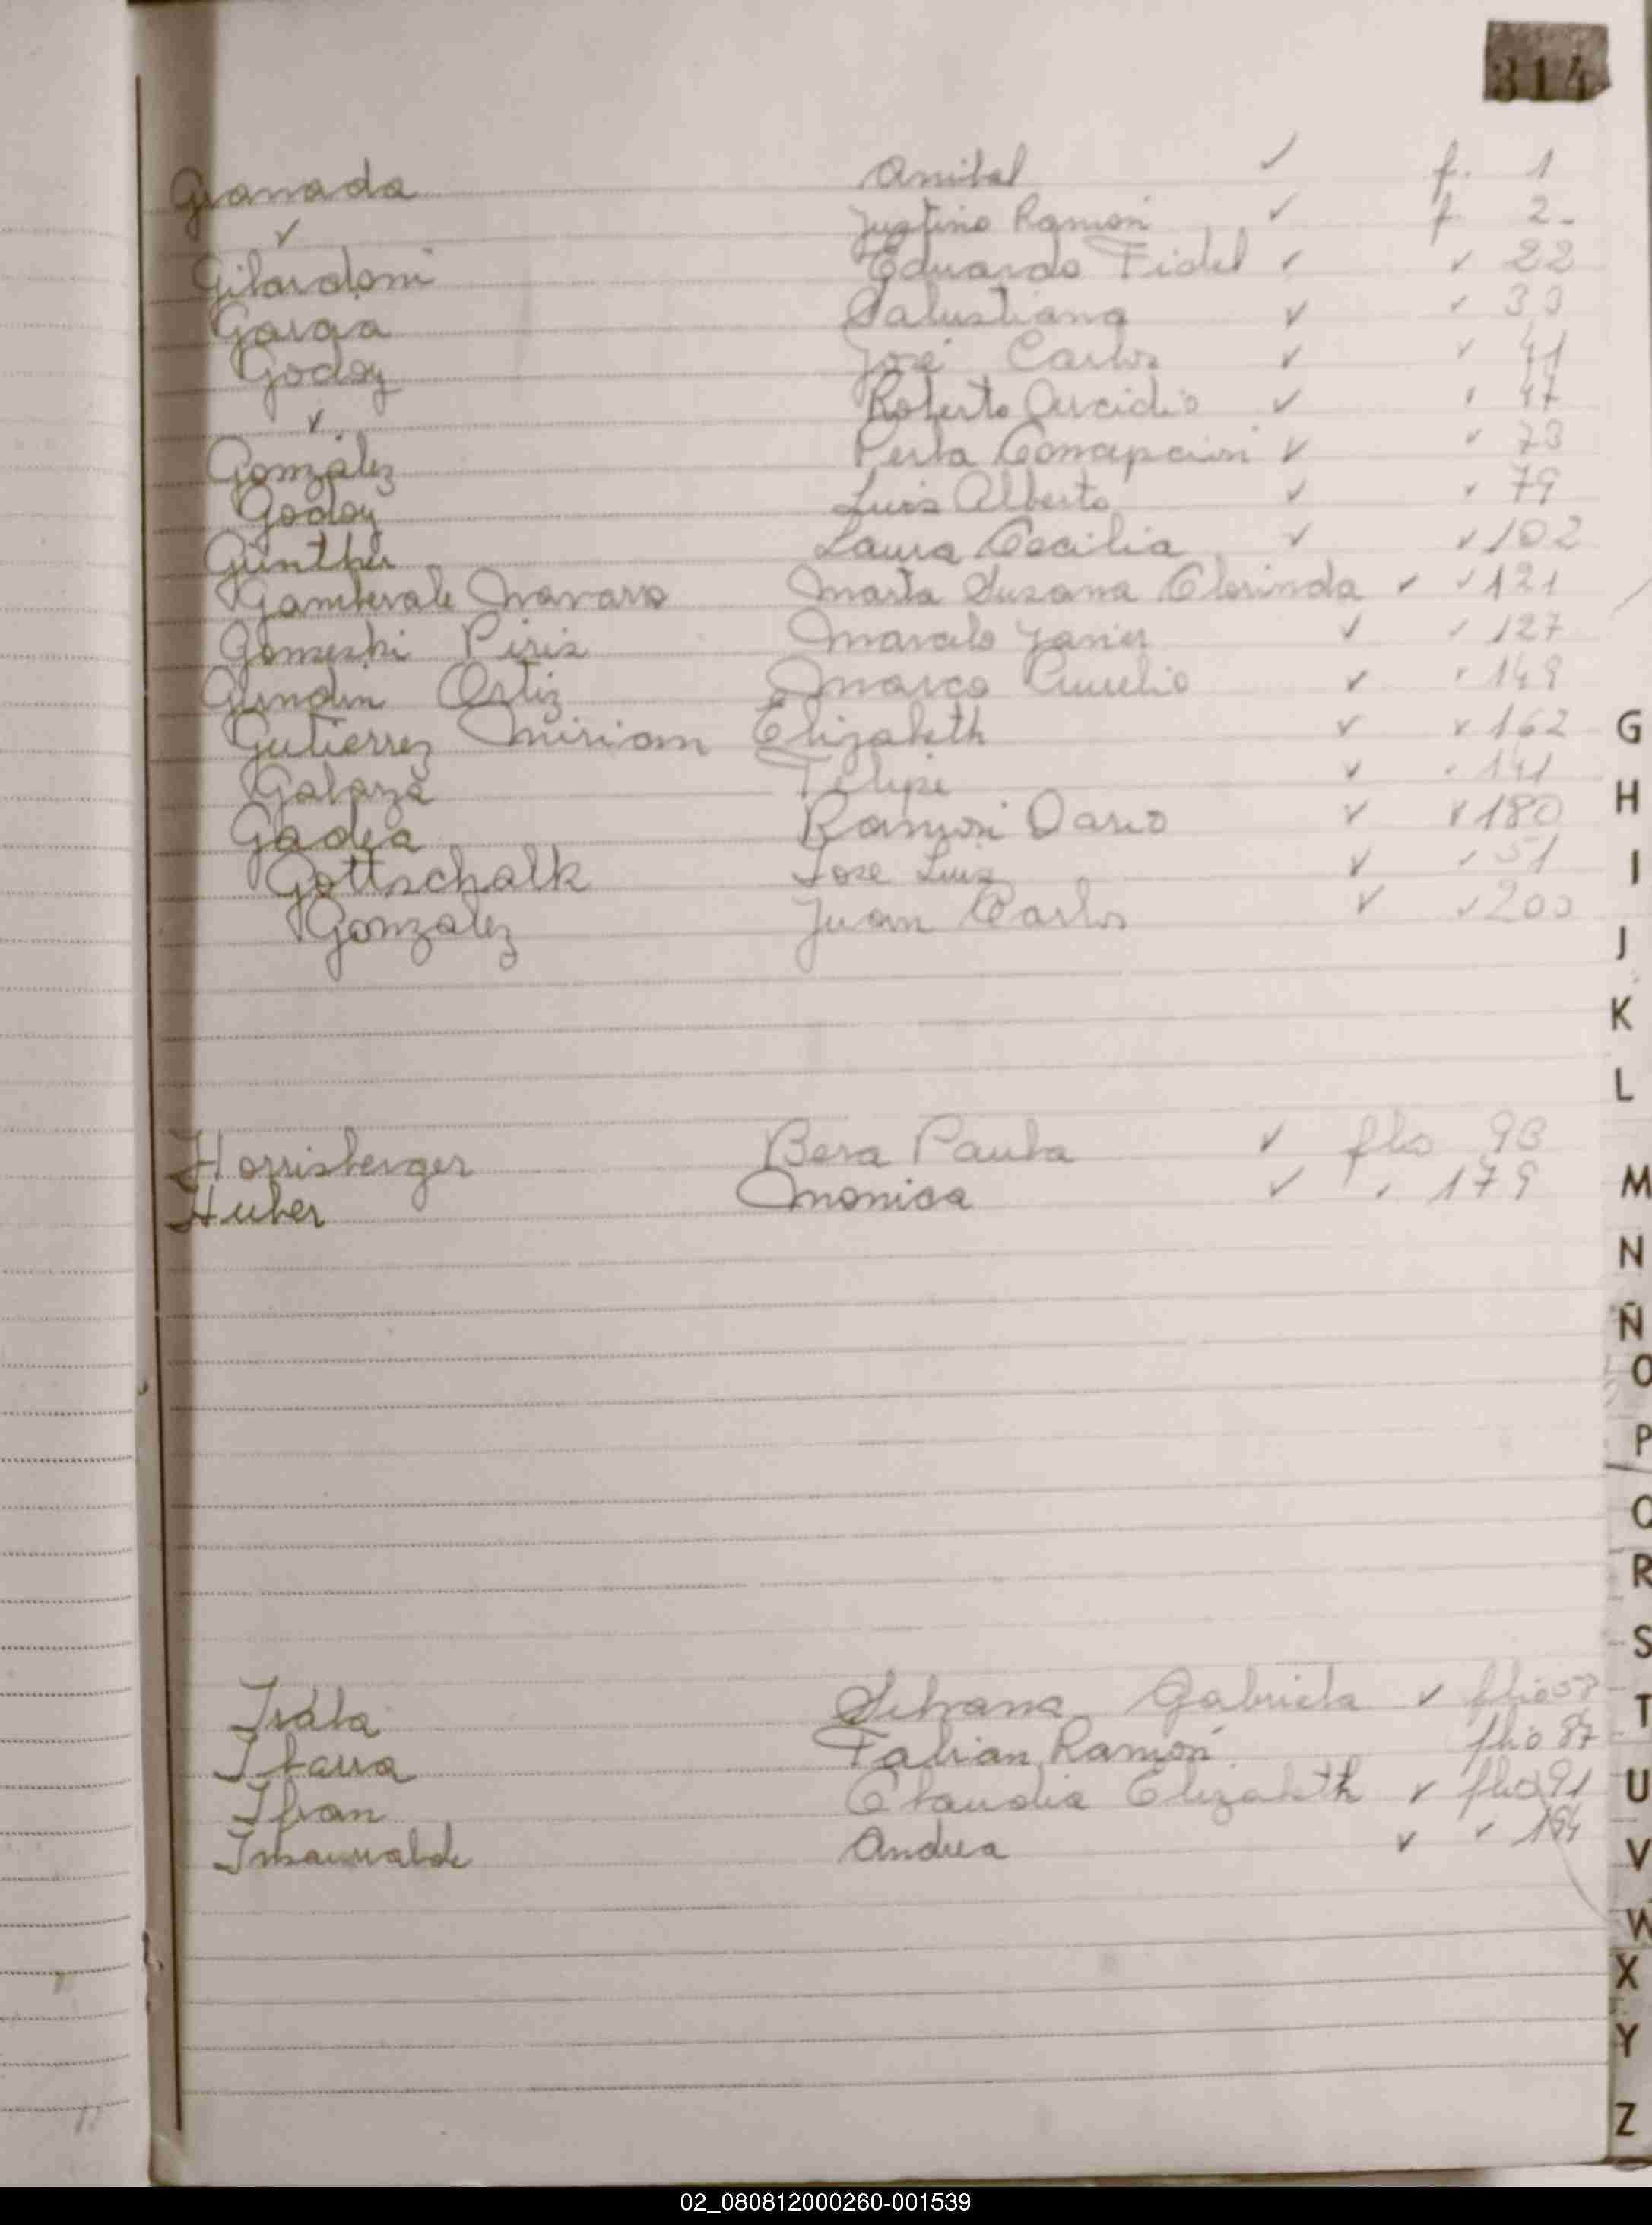 314
Granada Anibal ✓ f. 1
✓ Justino Ramon ✓ f 2-
Gilardoni Eduardo Fidel ✓ ✓ 22
Garga Salustiana ✓ ✓ 33
Godoy José Carlos ✓ ✓ 41
✓ Roberto ✓ ✓ 47
González Perla Concepcion ✓ ✓ 73
Godoy Luis Alberto ✓ ✓ 79
Günther Laura Cecilia ✓ ✓ 102
Gambevale Navarro Marta Susana Clorinda ✓ ✓ 121
Piris Marcelo Javier ✓ ✓ 127
Ortiz Marco Aurelio ✓ ✓ 149
Gutierrez Miriam Elizabeth ✓ ✓ 162
Galarza Felipe ✓ 141
Gadea Ramon Dario ✓ ✓ 180
Gottschalk Jose Luis ✓ ✓ 51
Gonzalez Juan Carlos ✓ ✓ 200
Horrisberger Bera Paula ✓ flio 93
Huber Monica ✓ ✓ 179
Silvana Gabriela ✓ flio 58
Ibarra Fabian Ramón flio 87
Ifran Claudia Elizabeth ✓ flio 91
Insaurralde Andrea ✓ ✓ 184
G
H
I
J
K
L
M
N
Ñ
O
P
Q
R
S
T
U
V
W
X
Y
Z
02_080812000260-001539